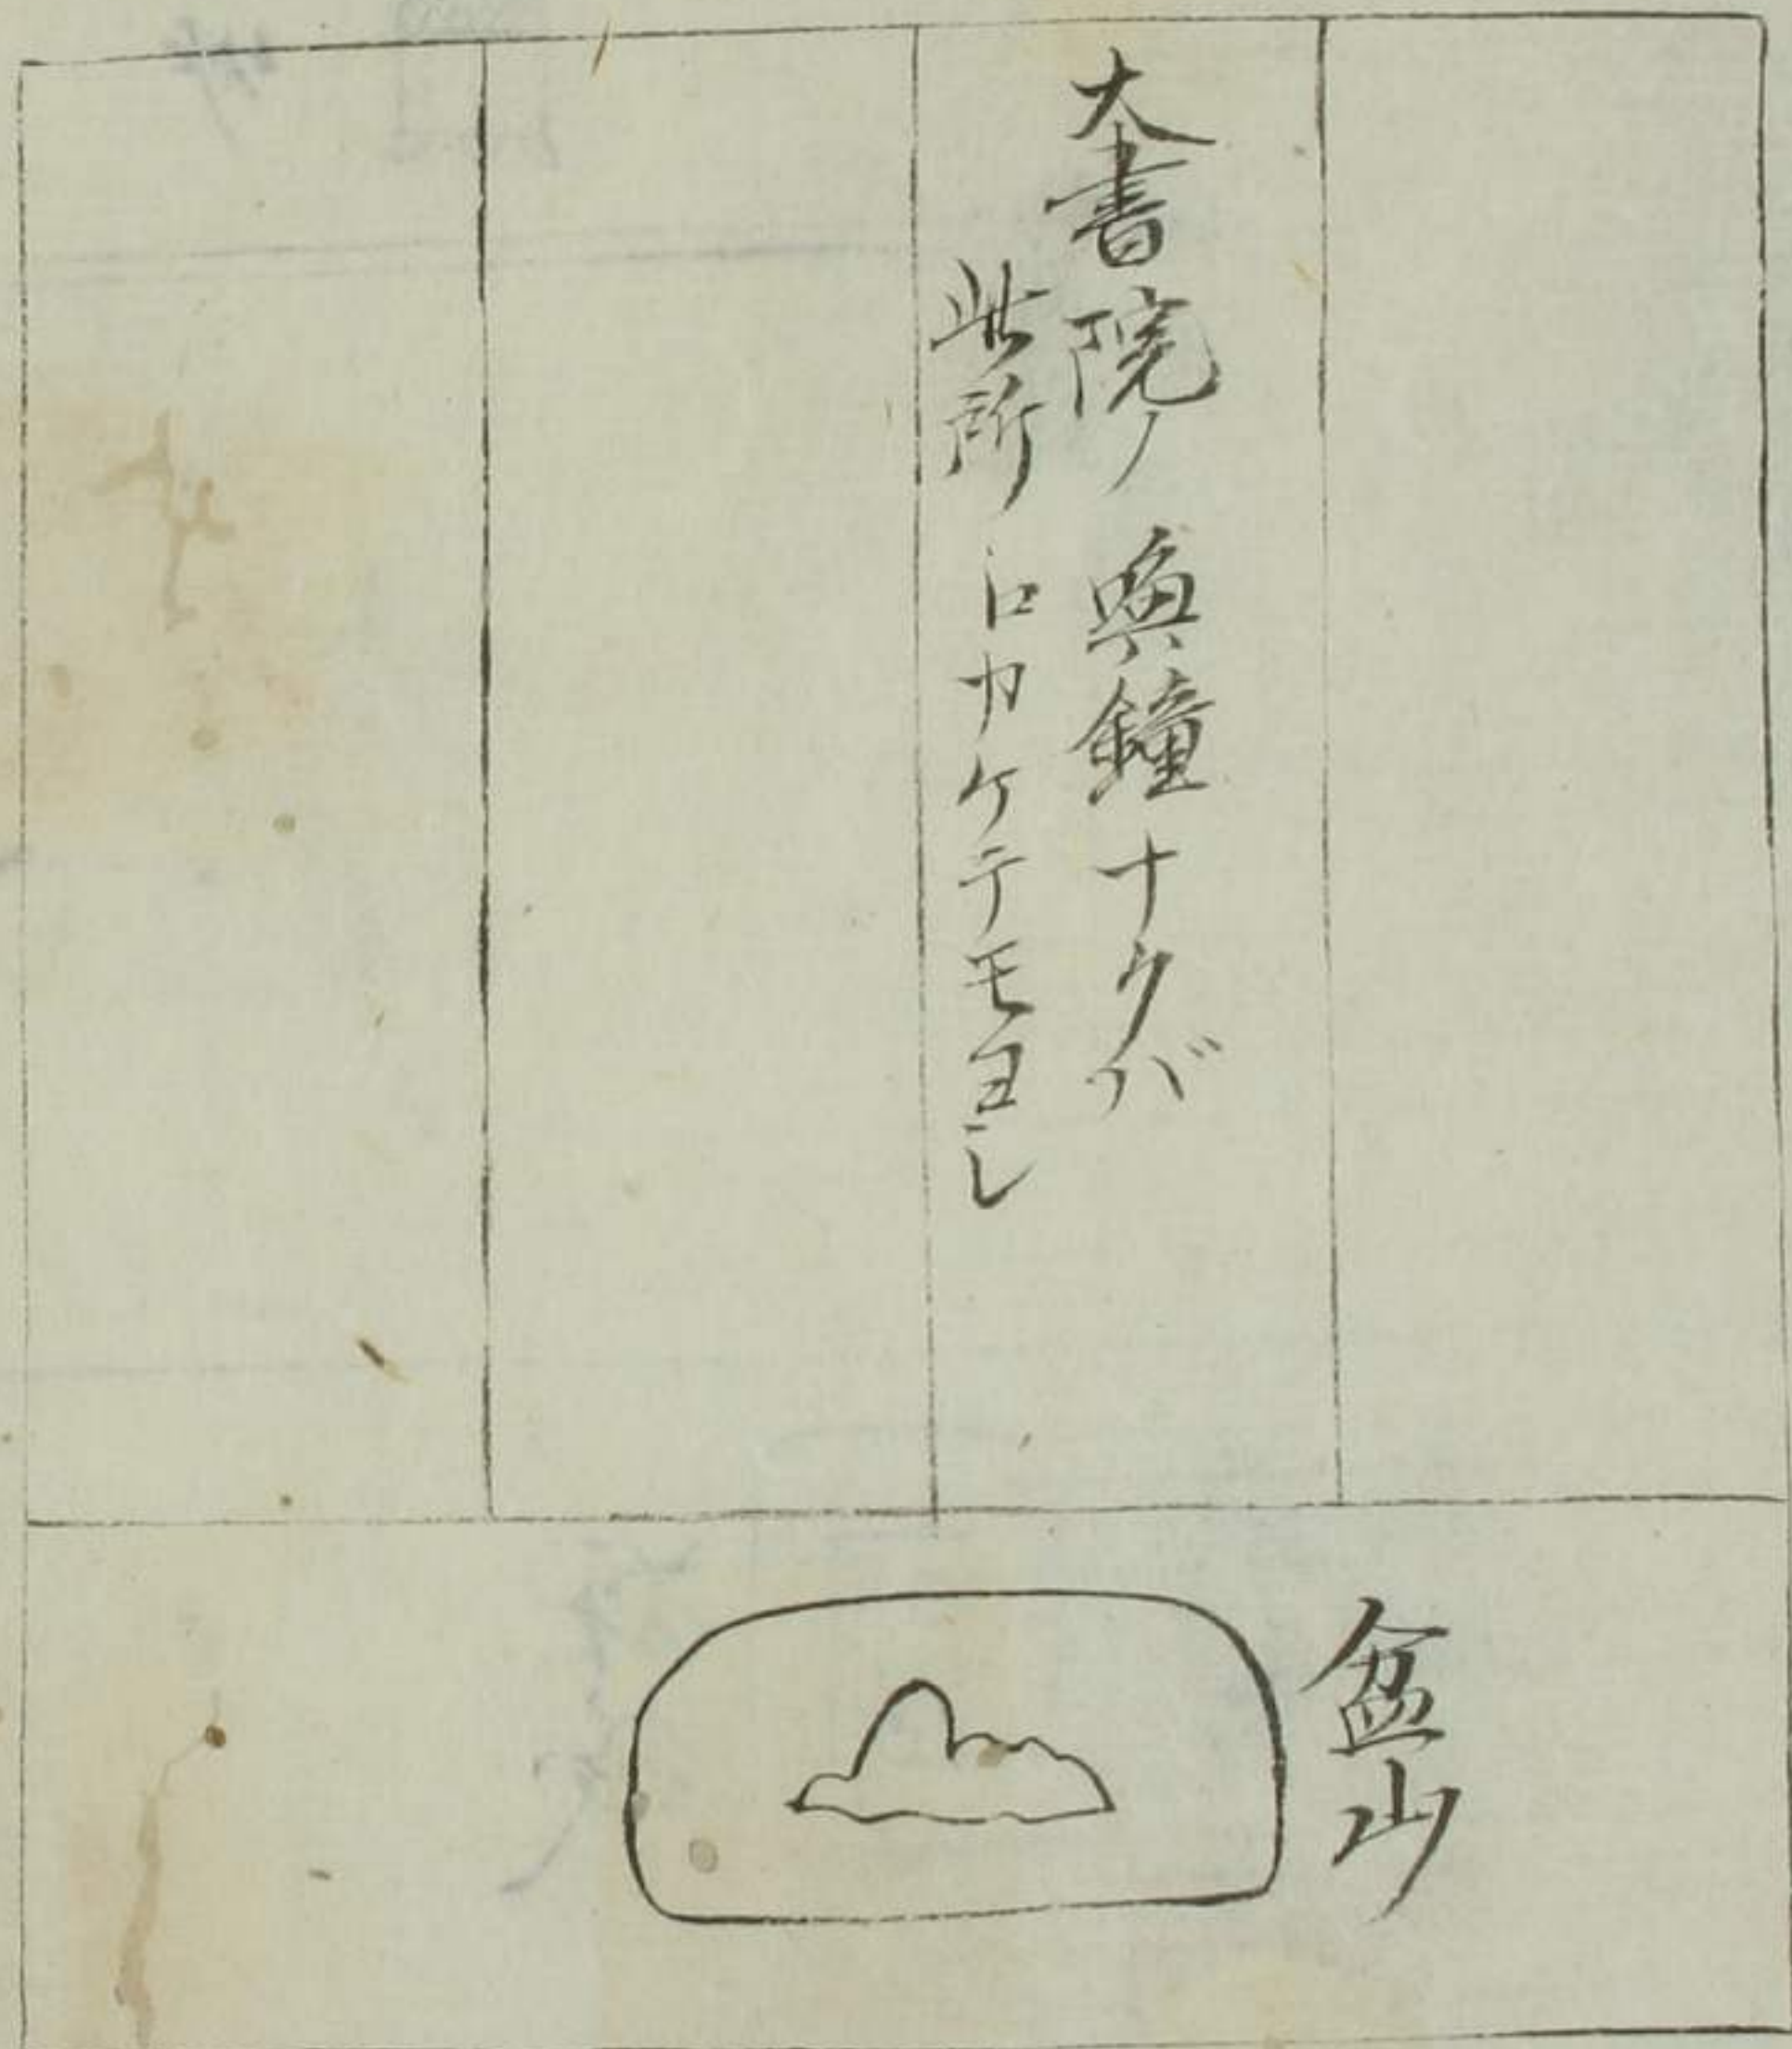 大書院ノ 興鐘ナクバ
此所ニカケテモヨシ
盆山